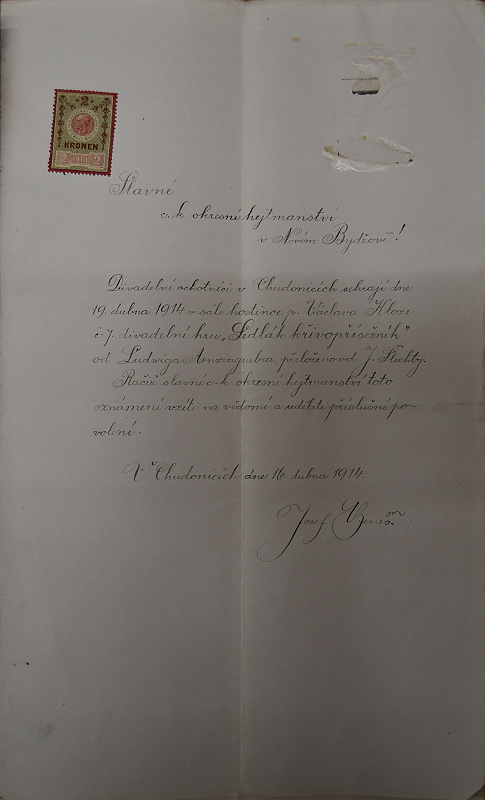 2
KRONEN
2 1910 2
Slavné
c. k. okresní hejtmanství
v Novém Bydžově!
Divadelní ochotníci v Chudonicích sehrají dne
19. dubna 1914 v sále hostince p. Václava Kloze
č. 7. divadelní hru „Sedlák křivopřísežník"
od Ludwiga Anzengrubra, přeloženo od J. Šlechty.
Račiž slavné c. k. okresní hejtmanství toto
oznámení vzíti na vědomí a uděliti příslušné po-
volení.
V Chudonicích dne 16. dubna 1914.
Josef Beneš